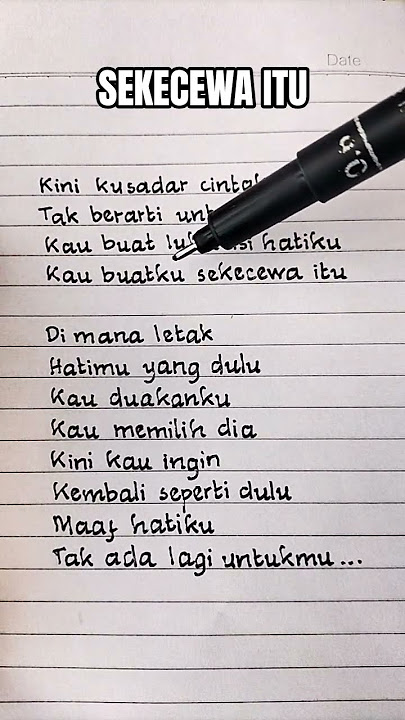 Date
SEKECEWA ITU
Kini kusadar
Tak berarti
Kau buat hatiku
Kau buatku sekecewa itu
Di mana letak
Hatimu yang dulu
Kau duakanku
Kau memilih dia
Kini kau ingin
Kembali seperti dulu
Maaf hatiku
Tak ada lagi untukmu...